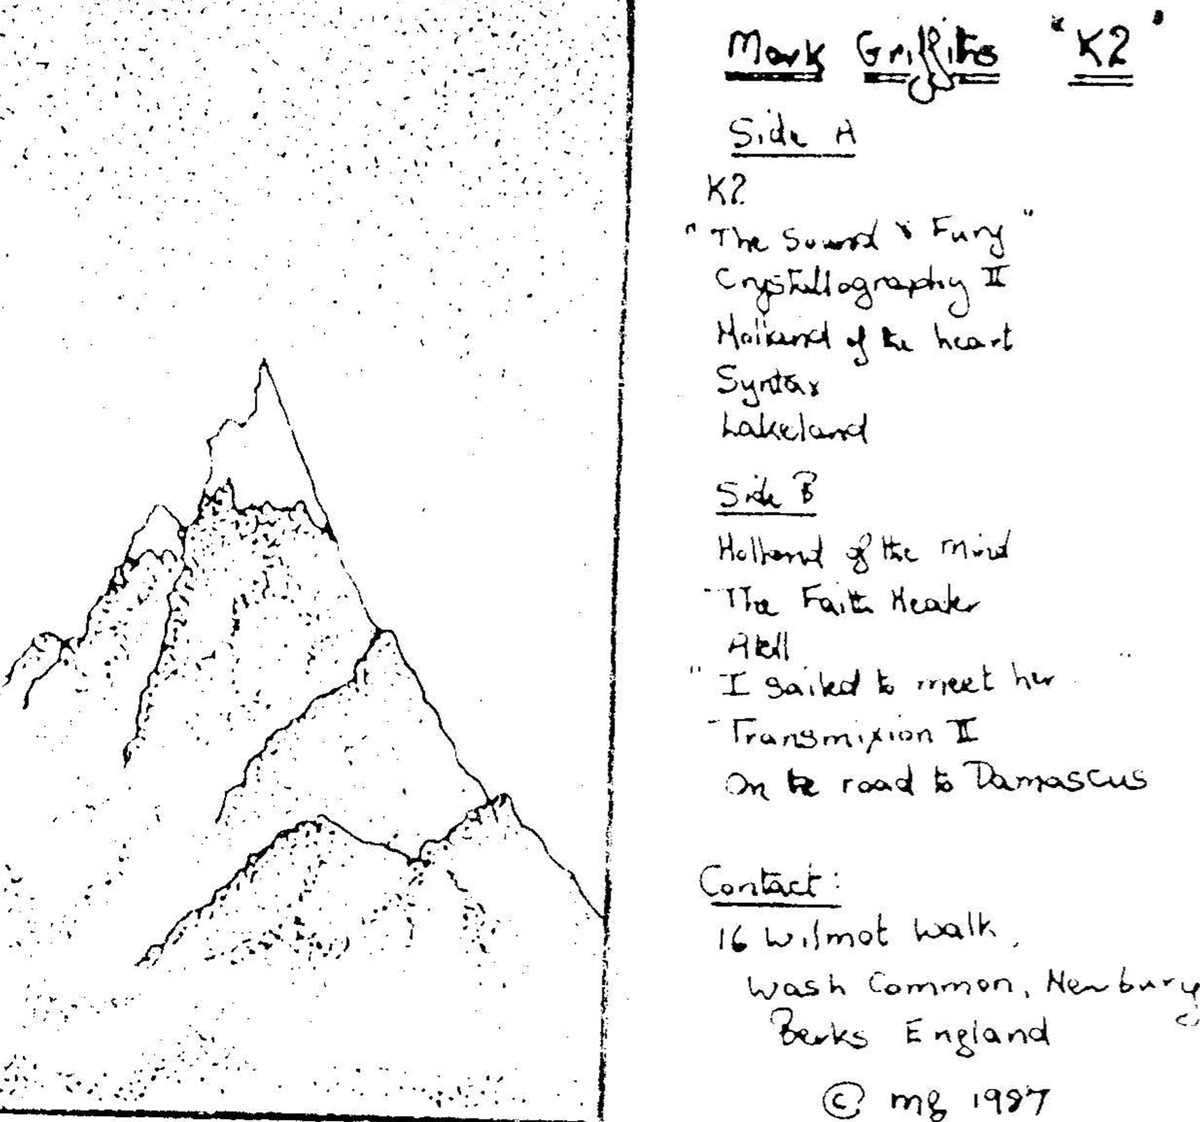 Mark Griffiths "K2"
Side A
K2
"The Sound & Fury"
Crystallography II
Holland of the heart
Syntax
Lakeland
Side B
Holland of the Mind
The Faith Healer
"I sailed to meet her"
Transmixion II
On the road to Damascus
Contact:
16 Wilmot Walk,
Wash Common, Newbury
Berks England
© mg 1987